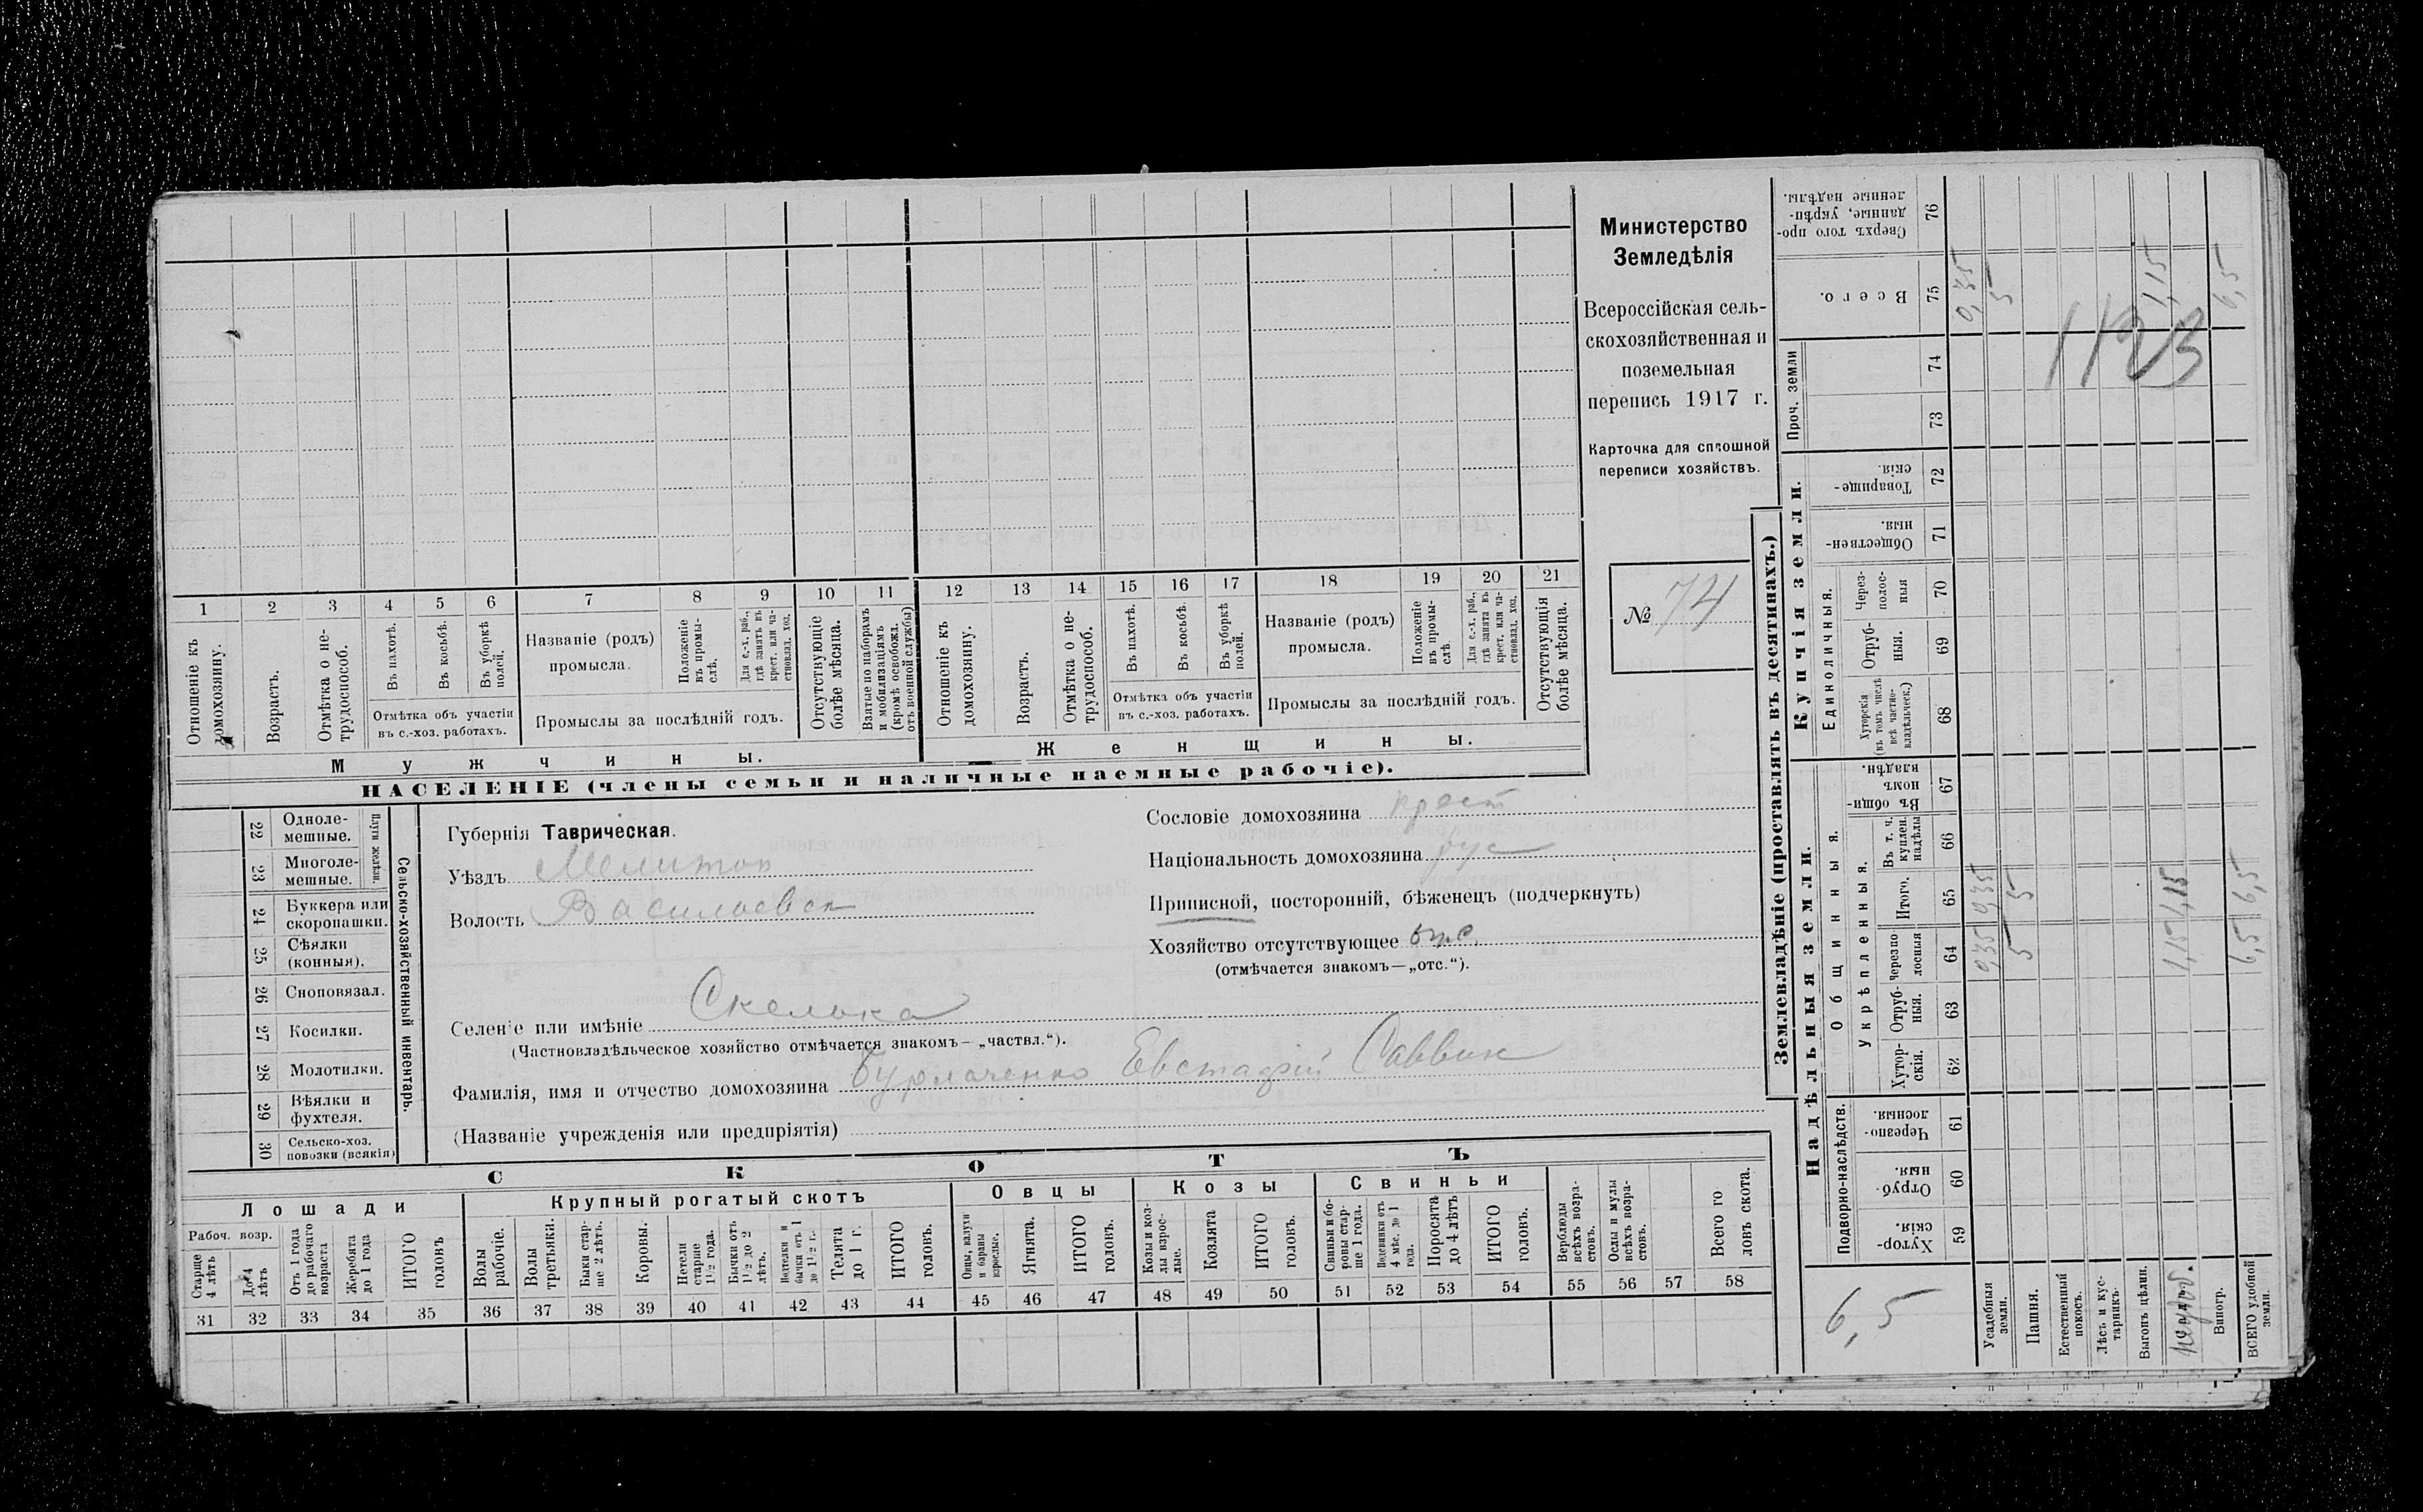 Министерство
Земледѣлія
Всероссійская сель-
скохозяйственная и
поземельная
перепись 1917 г.
Карточка для сплошной
переписи хозяйствъ.
№ 74
1 2 3 4 5 6 7 8 9 10 11 12 13 14 15 16 17 18 19 20 21
Отношеніе къ домохозяину.
Возрастъ.
Отмѣтка о не-трудоспособ.
Въ пахотѣ.
Въ косьбѣ.
Въ уборкѣ полей.
Отмѣтка объ участіи
въ с.-хоз. работахъ.
Названіе (родъ)
промысла.
Положеніе въ промы-слѣ.
Для с.-х. раб., гдѣ занятъ въ крест. или ча-стновлад. хоз.
Промыслы за послѣдній годъ.
Отсутствующіе болѣе мѣсяца.
Взятые по наборамъ и мобилизаціямъ (кромѣ освобожд. отъ военной службы)
Отношеніе къ домохозяину.
Возрастъ.
Отмѣтка о не-трудоспособ.
Въ пахотѣ.
Въ косьбѣ.
Въ уборкѣ полей.
Отмѣтка объ участіи
въ с.-хоз. работахъ.
Названіе (родъ)
промысла.
Положеніе въ промы-слѣ.
Для с.-х. раб., гдѣ занята въ крест. или ча-стновлад. хоз.
Промыслы за послѣдній годъ.
Отсутствующія болѣе мѣсяца.
Мужчины.
Женщины.
НАСЕЛЕНІЕ (члены семьи и наличные наемные рабочіе).
22 Одноле-мешные.
23 Многоле-мешные.
Плуги желѣзн.
24 Буккера или скоропашки.
25 Сѣялки (конныя).
26 Сноповязал.
27 Косилки.
28 Молотилки.
29 Вѣялки и фухтеля.
30 Сельско-хоз. повозки (всякія)
Сельско-хозяйственный инвентарь.
Губернія Таврическая.
Уѣздъ Мелитоп
Волость Васильевск
Сословіе домохозяина крест
Національность домохозяина рус
Приписной, посторонній, бѣженецъ (подчеркнуть)
Хозяйство отсутствующее отс.
(отмѣчается знакомъ—„отс.“).
Селеніе или имѣніе Скелька
(Частновладѣльческое хозяйство отмѣчается знакомъ— „частвл.“).
Фамилія, имя и отчество домохозяина Бурлаченко Евстафій Саввич
(Названіе учрежденія или предпріятія)
СКОТЪ
Лошади
Рабоч. возр.
Старше 4 лѣтъ
До 4 лѣтъ
Отъ 1 года до рабочаго возраста
Жеребята до 1 года
ИТОГО головъ
Крупный рогатый скотъ
Волы рабочіе.
Волы третьяки.
Быки стар-ше 2 лѣтъ.
Коровы.
Нетели старше 1½ года.
Бычки отъ 1½ до 2 лѣтъ.
Нетелки и бычки отъ 1 до 1½ г.
Телята до 1 г.
ИТОГО головъ.
Овцы
Овцы, валухи и бараны взрослые.
Ягнята.
ИТОГО головъ.
Козы
Козы и коз-лы взрос-лые.
Козлята
ИТОГО головъ.
Свиньи
Свиньи и бо-ровы стар-ше 1 года.
Подсвинки отъ 4 мѣс. до 1 года.
Поросята до 4 лѣтъ
ИТОГО головъ.
Верблюды всѣхъ возра-стовъ.
Ослы и мулы всѣхъ возра-стовъ.
Всего го ловъ скота.
31 32 33 34 35 36 37 38 39 40 41 42 43 44 45 46 47 48 49 50 51 52 53 54 55 56 57 58
Землевладѣніе (проставлять въ десятинахъ.)
Надѣльныя земли.
Подворно-наслѣдств.
Хутор-скія. 59
Отруб-ныя. 60
Черезпо-лосныя. 61
Общинныя.
Укрѣпленныя.
Хутор-скія. 62
Отруб-ныя. 63
Черезпо лосныя 64
Итого. 65
Въ т. ч. куплен. надѣлы 66
Въ общин-номъ владѣн. 67
Купчія земли.
Единоличныя.
Хуторскія (въ томъ числѣ всѣ частно-владѣльческ.) 68
Отруб-ныя. 69
Через-полос-ныя 70
Обществен-ныя. 71
Товарище-скія. 72
Проч. земли
73 74
Всего. 75
Сверхъ того про-данные, укрѣп-ленные надѣлы. 76
6,5
Усадебныя земли. 0,35 0,35 0,35
Пашня. 5 5 5
Естественный покосъ.
Лѣсъ и кус-тарникъ.
Выгонъ цѣлин.
неудоб. 1,15 1,15 1,15
Виногр.
ВСЕГО удобной земли. 6,5 6,5 6,5
1123